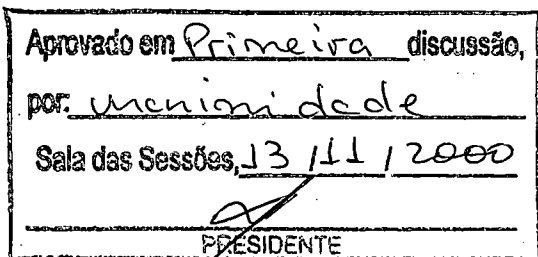 Aprovado em Primeira discussão,
por: unanimidade
Sala das Sessões, 13 / 11 / 2000
PRESIDENTE